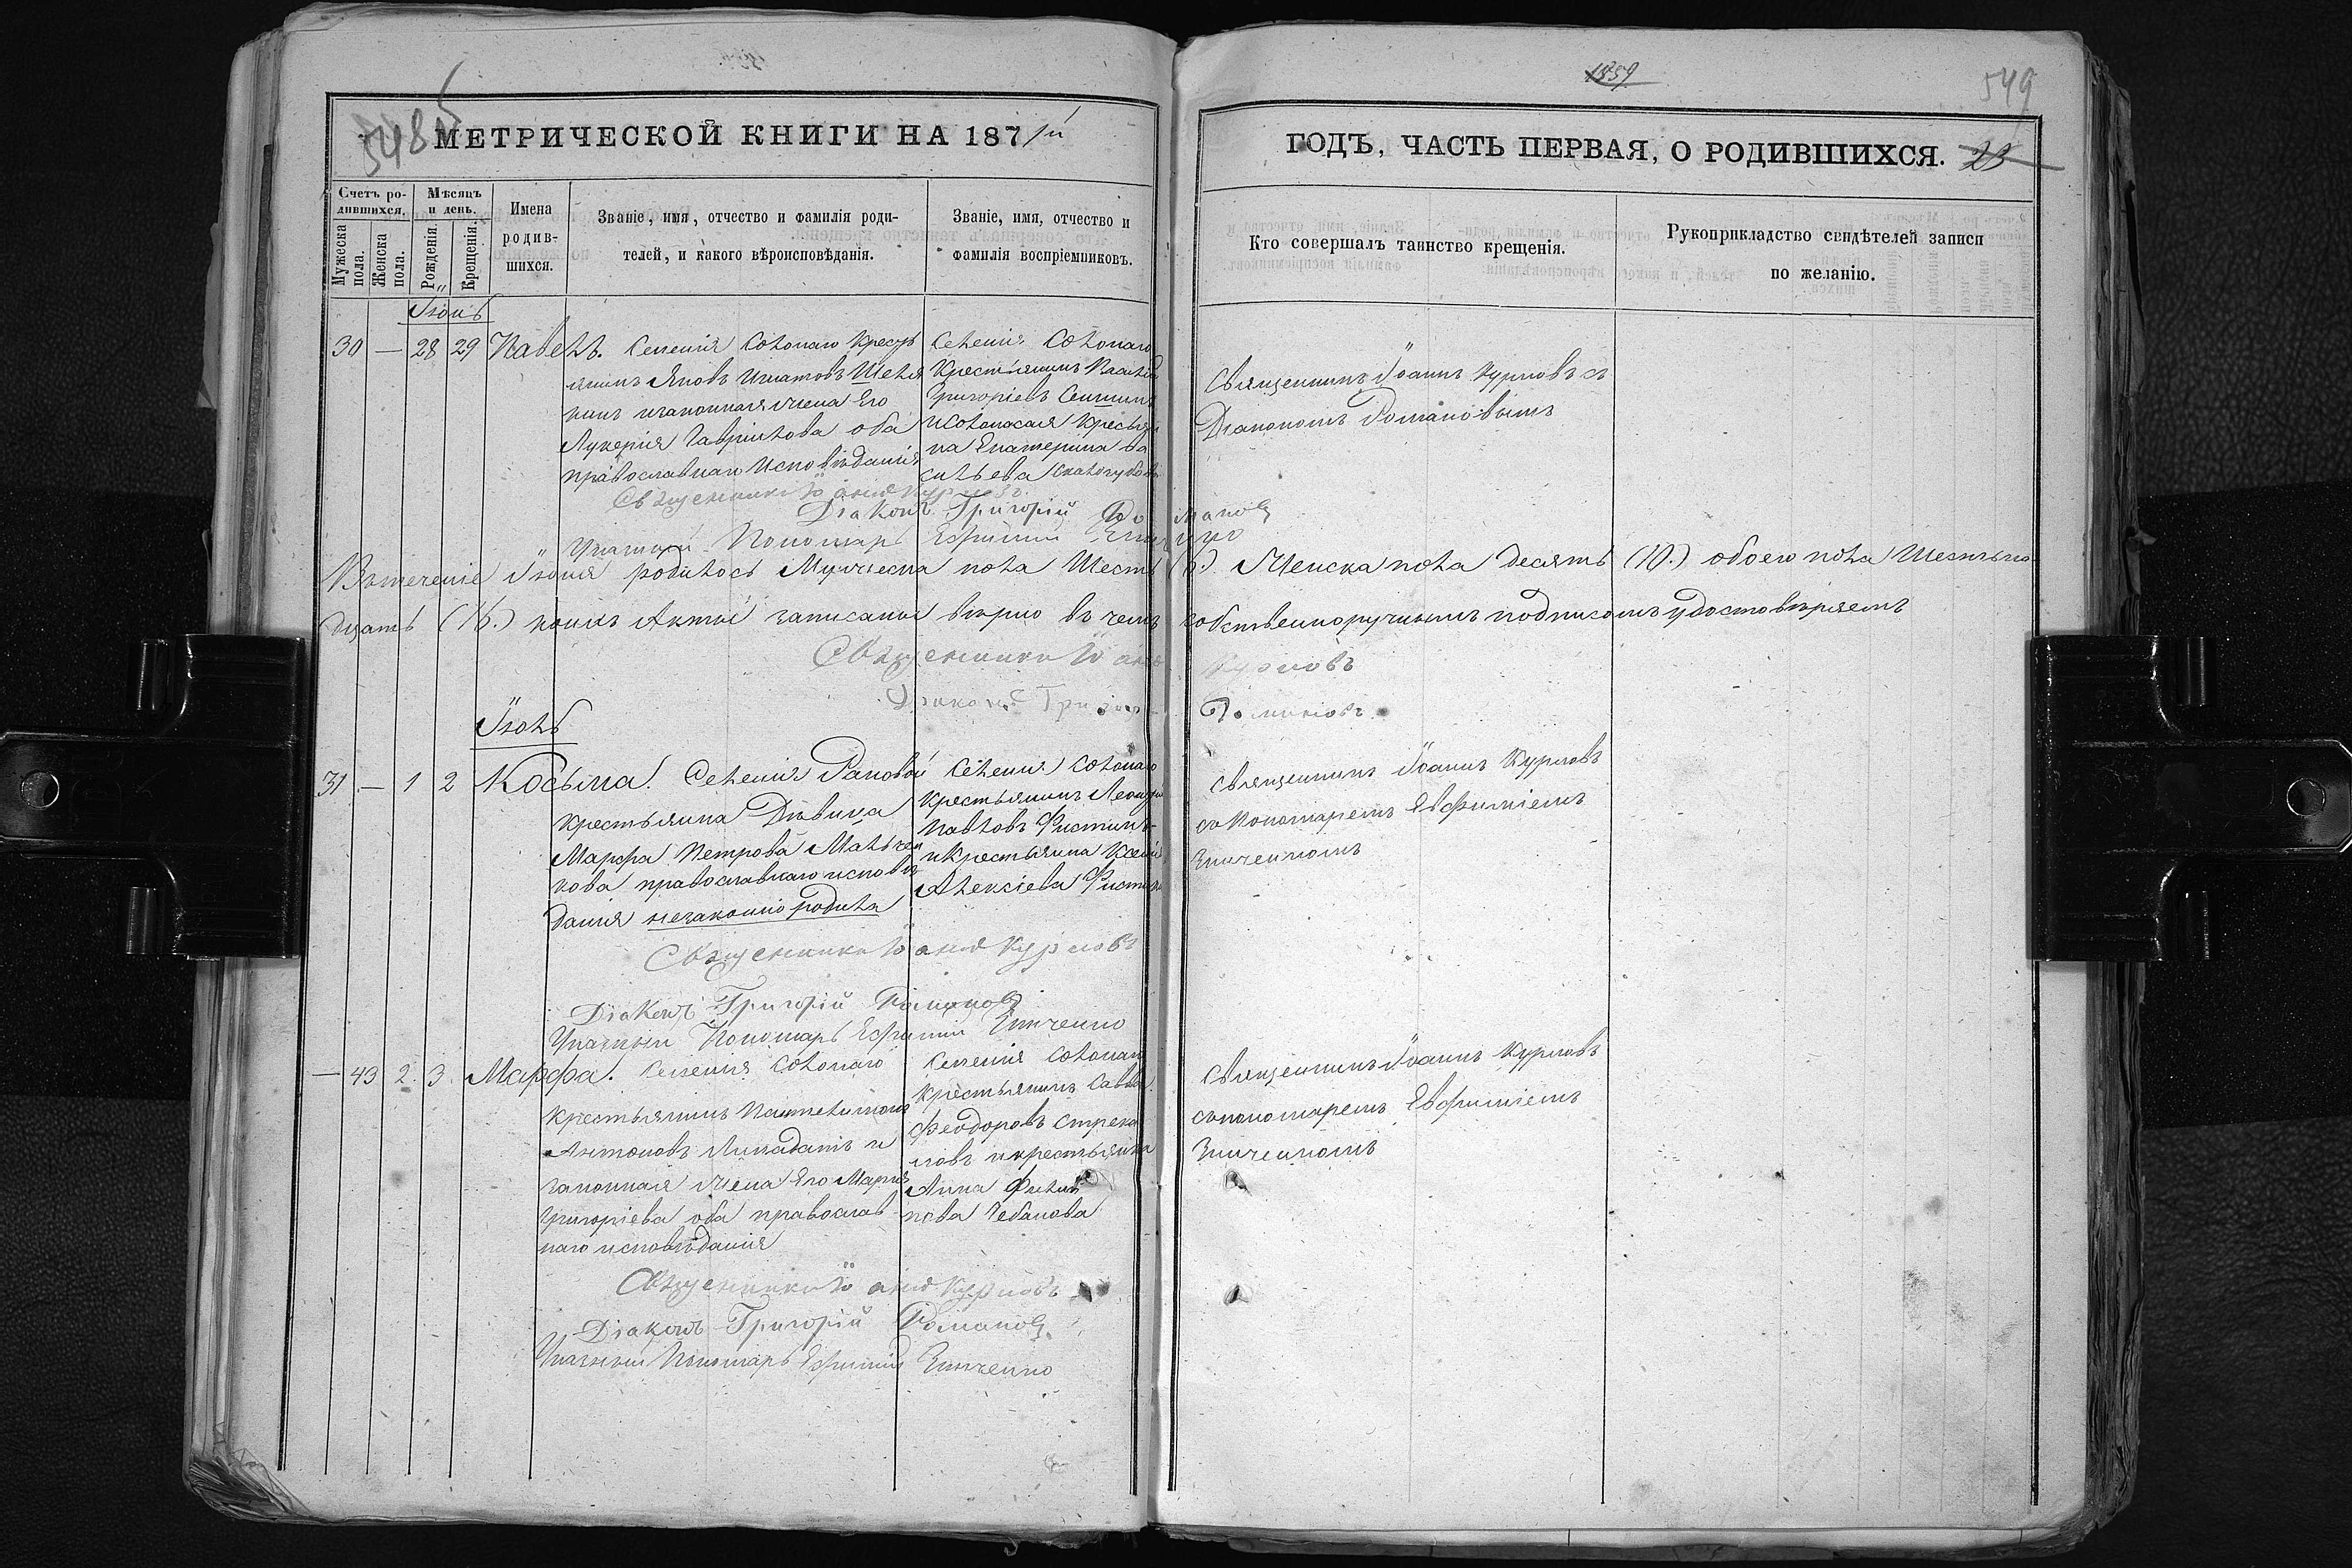 1859
549
548
МЕТРИЧЕСКОЙ КНИГИ НА 1871й
ГОДЪ, ЧАСТЬ ПЕРВАЯ, О РОДИВШИХСЯ. 23
Счетъ ро-
дившихся.
Мужеска пола.
Женска пола.
Мѣсяцъ
и день.
Рожденія.
Крещенія.
Имена
родив-
шихся.
Званіе, имя, отчество и фамилія роди-
телей, и какого вѣроисповѣданія.
Званіе, имя, отчество и
фамилія воспріемниковъ.
Кто совершалъ таинство крещенія.
Рукоприкладство свидѣтелей записи
по желанію.
Іюнь
30 — 28 29 Павелъ.
Селенія Солонаго Кресть
янинъ Яковъ Игнатовъ
изаконная жена Его
Лукерія Гавріилова оба
православнаго Исповѣданія
Селенія Солонаго
Крестьянинъ Василій
Григоріевъ
иСолонаская Крестьян
ка Екатерина Ва
сильева
Священникъ Іоаннъ Курловъ съ
Діакономъ Романовымъ
Священникъ Іоаннъ Курловъ
Діаконъ Григорій Романовъ
Указный Пономарь Ефимій
Втеченіе Іюня родилось Мужеска пола Шесть (6.) Женска пола Десять (10.) обоего пола Шестьна
дцать (16.) коихъ Акты записаны вѣрно въ чемъ собственноручнымъ подписомъ удостовѣряемъ
Священникъ Іоаннъ Курловъ
Діаконъ Григорій Романовъ
Іюль
31. — 1 2 Косьма.
Селенія Раковой
крестьянка Дѣвица
Марфа Петрова Мальчен
кова православнаго исповѣ
данія незаконно родила
Селенія Солонаго
крестьянинъ
Павловъ Фистинъ
иКрестьянка Ксенія
Алексіева
Священникъ Іоаннъ Курловъ
съ Пономаремъ Евфиміемъ
Зинченкомъ
Священникъ Іоаннъ Курловъ
Діаконъ Григорій Романовъ
Указный Пономарь Ефимій Зинченко
— 43 2. 3. Марфа.
Селенія Солонаго
крестьянинъ Пантелимонъ
Антоновъ и
законная жена Его Марія
Григоріева оба православ
наго исповѣданія
Селенія Солонаго
крестьянинъ Савва
Феодоровъ Стрека
ловъ икрестьянка
Анна Филип
пова Чебанова
Священникъ Іоаннъ Курловъ
съпономаремъ Евфиміемъ
Зинченкомъ
Священникъ Іоаннъ Курловъ
Діаконъ Григорій Романовъ
Указный Пономарь Ефимій Зинченко